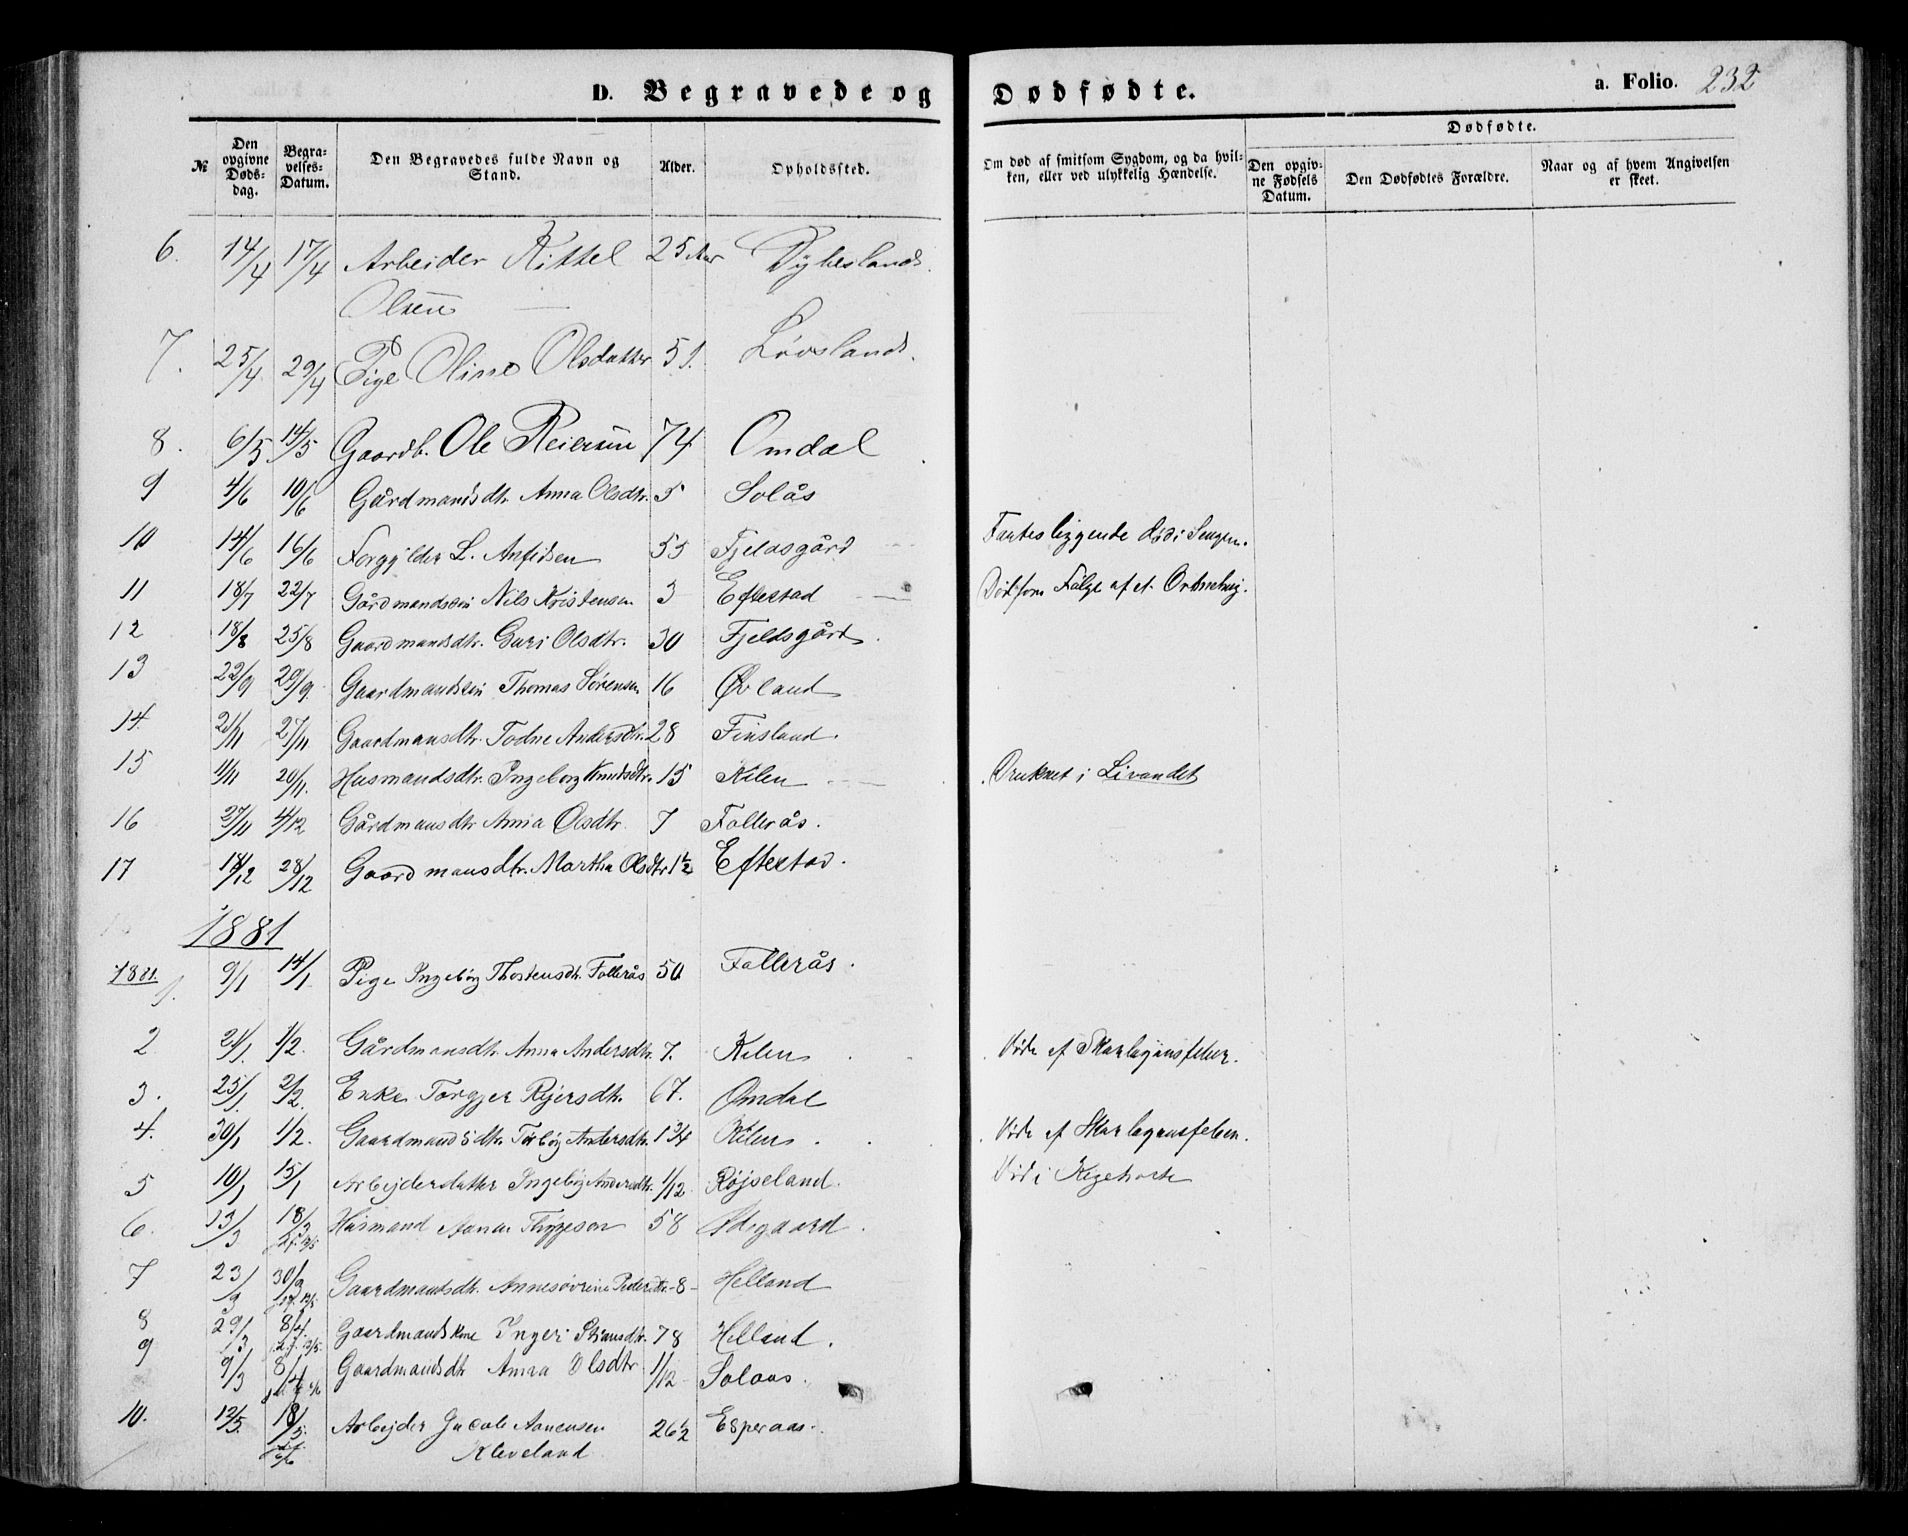 D. Begravede og Dødfødte.
a. Folio. 232
№ Den opgivne Dødsdag. Begravelses-Datum. Den Begravedes fulde Navn og Stand. Alder. Opholdssted. Om død af smitsom Sygdom, og da hvilken, eller ved ulykkelig Hændelse. Dødfødte. Den opgivne Fødsels Datum. Den Dødfødtes Forældre. Naar og af hvem Angivelsen er skeet.
6. 14/4 17/4 Arbeider Kittel 25 Aar Dybesland.
Olsen
7. 25/4 29/4 Pige Oline Olsdatter 51. Løvsland.
8. 6/5 14/5 Gaardb. Ole Reiersen 74 Omdal
9 4/6 10/6 Gårdmandsdtr. Anna Olsdtr. 5 Solås
10 14/6 16/6 Forgylder L. Anfidsen 55 Fjeldsgård Fantes liggende død i Sengen.
11 18/7 22/7 Gårdmandssøn Nils Kristensen 3 Eftestad Død som Følge af et
12 18/8 25/8 Gaardmandsdtr. Guri Olsdtr. 30 Fjeldsgård.
13 22/9 29/9 Gaardmandssøn Thomas Sørensen 16 Øvland
14. 21/11 27/11 Gaardmansdtr. Todne Andersdtr. 28 Finsland.
15 11/11 20/11. Husmandsdtr. Ingeborg Knudsdtr. 15 Kilen Druknet i Livandet
16 27/11 4/12 Gårdmansdtr Anna Olsdtr. 7 Follerås.
17 18/12 28/12 Gaardmansdtr. Martha Olsdtr 1½ Eftestad.
1881
1881. 1. 9/1 14/1 Pige Ingebòrg Thostensdtr. Follerås 50 Follerås.
2 21/1. 1/2. Gårdmansdtr. Anna Andersdtr. 7. Kilen. Døde af Skarlagensfeber.
3. 25/1. 2/2. Enke Torgjer Rejersdtr. 67. Omdal
4. 30/1 1/2. Gaardmandsdtr. Torbòrg Andersdtr. 1 3/4 Kilen. Døde af Skarlagensfeber.
5 10/1 15/1 Arbejderdatter Ingebòrg Andersdtr. 1/12 Røjseland. Død i Kighoste
6. 13/3 18/3 Husmand Aanen Thygeson 58 Ødegaard.
7 23/3 30/3 Gaardmandsdtr. Annesøvrine Pedersdtr. -8- Helland
8 29/3 8/4. Gaardmandskone Ingeri 78 Helland.
9 9/3 8/4 Gaardmandsdtr Anna Olsdtr. 1/12 Solaas.
10. 12/5. 18/5. Arbejder Jacob Aanensen 26½ Esperaas.
Kleveland